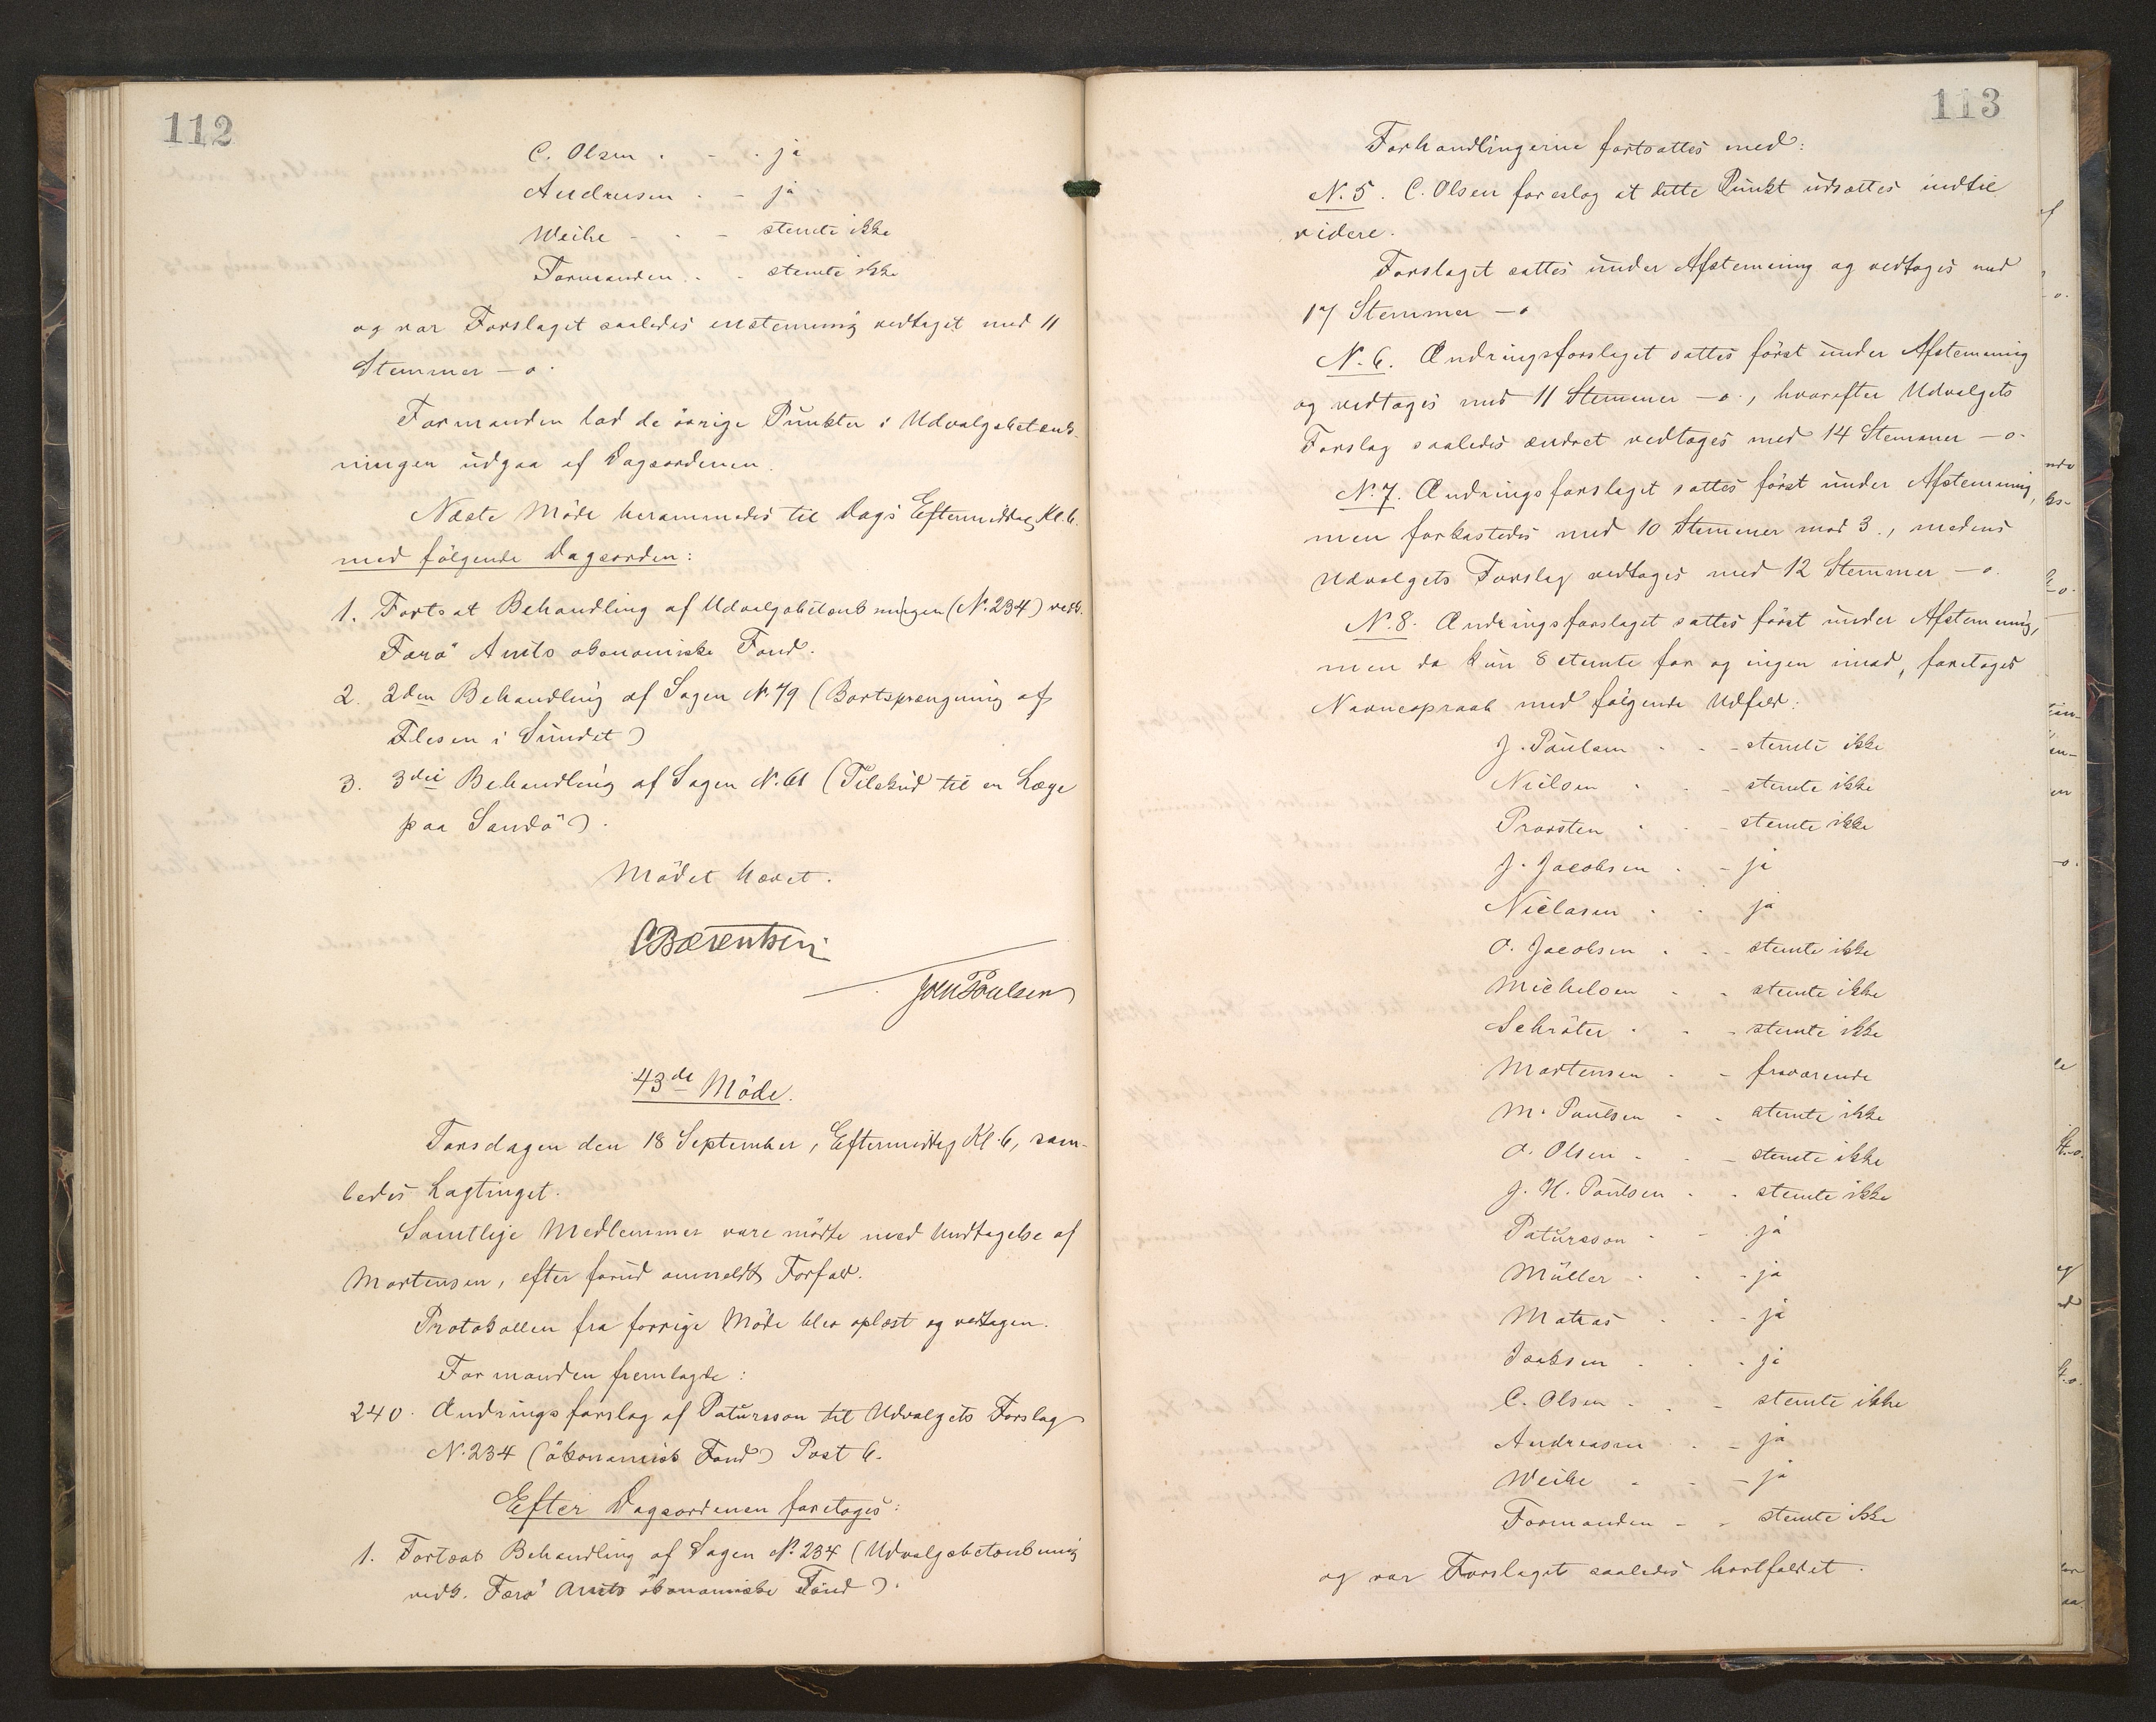 112
C. Olsen . - . ja
Andreasen . - ja
Weihe - . - stemte ikke
Formanden . . - stemte ikke
og var Forslaget saaledes enstemmig vedtaget med 11
Stemmer - o.
Formanden lod de övrige Punkter i Udvalgsbetænk-
ningen udgaa af Dagsordenen.
Næste Möde berammedes til Dags Eftermiddag Kl. 6.
med fölgende Dagsorden:
1. Fortsat Behandling af Udvalgsbetænkningen (N. 234) vedk.
Færö Amts økonomiske Fond.
2. 2den Behandling af Sagen N. 79 (Bortsprængning af
Flesen i Sundet)
3. 3die Behandling af Sagen N. 61 (Tilskud til en Læge
paa Sandö).
Mödet hævet.
C Bærentsen
Joen Poulsen
43de Möde.
Torsdagen den 18 September, Eftermiddag Kl. 6, sam-
ledes Lagtinget.
Samtlige Medlemmer vare mödte med Undtagelse af
Mortensen, efter forud anmeldt Forfald.
Protokollen fra forrige Möde blev oplæst og vedtagen.
Formanden fremlagde:
240. Ændringsforslag af Patursson til Udvalgets Forslag
N. 234 (ökonomisk Fond) Post 6.
Efter Dagsordenen foretoges:
1. Fortsat Behandling af Sagen N. 234 (Udvalgsbetænkning
vedk. Færö Amts ökonomiske Fond).
113
Forhandlingerne fortsattes med:
N. 5. C. Olsen foreslog at dette Punkt udsattes indtil
videre.
Forslaget sattes under Afstemning og vedtoges med
17 Stemmer - o
N. 6. Ændringsforslaget sattes först under Afstemning
og vedtoges med 11 Stemmer - o., hvorefter Udvalgets
Forslag saaledes ændret vedtoges med 14 Stemmer - o.
N. 7. Ændringsforslaget sattes först under Afstemning,
men forkastedes med 10 Stemmer mod 3., medens
Udvalgets Forslag vedtoges med 12 Stemmer - o.
N. 8. Ændringsforslaget sattes först under Afstemning,
men da kun 8 stemte for og ingen imod, foretoges
Navneopraab med fölgende Udfald:
J. Poulsen . . - stemte ikke
Nielsen . . - stemte ikke
Provsten . . - stemte ikke
J. Jacobsen . - ja
Niclasen . . ja
O. Jacobsen . . - stemte ikke
Michelsen - . stemte ikke
Schröter . - - stemte ikke
Mortensen - - fraværende
M. Poulsen - . stemte ikke
O. Olsen - . - stemte ikke
J. H. Poulsen - . stemte ikke
Patursson - - . ja
Müller . . - ja
Matras . . - ja
Isaksen . . - ja
C. Olsen . . - stemte ikke
Andreasen . - ja
Weihe . - - ja
Formanden - - stemte ikke
og var Forslaget saaledes bortfaldet.